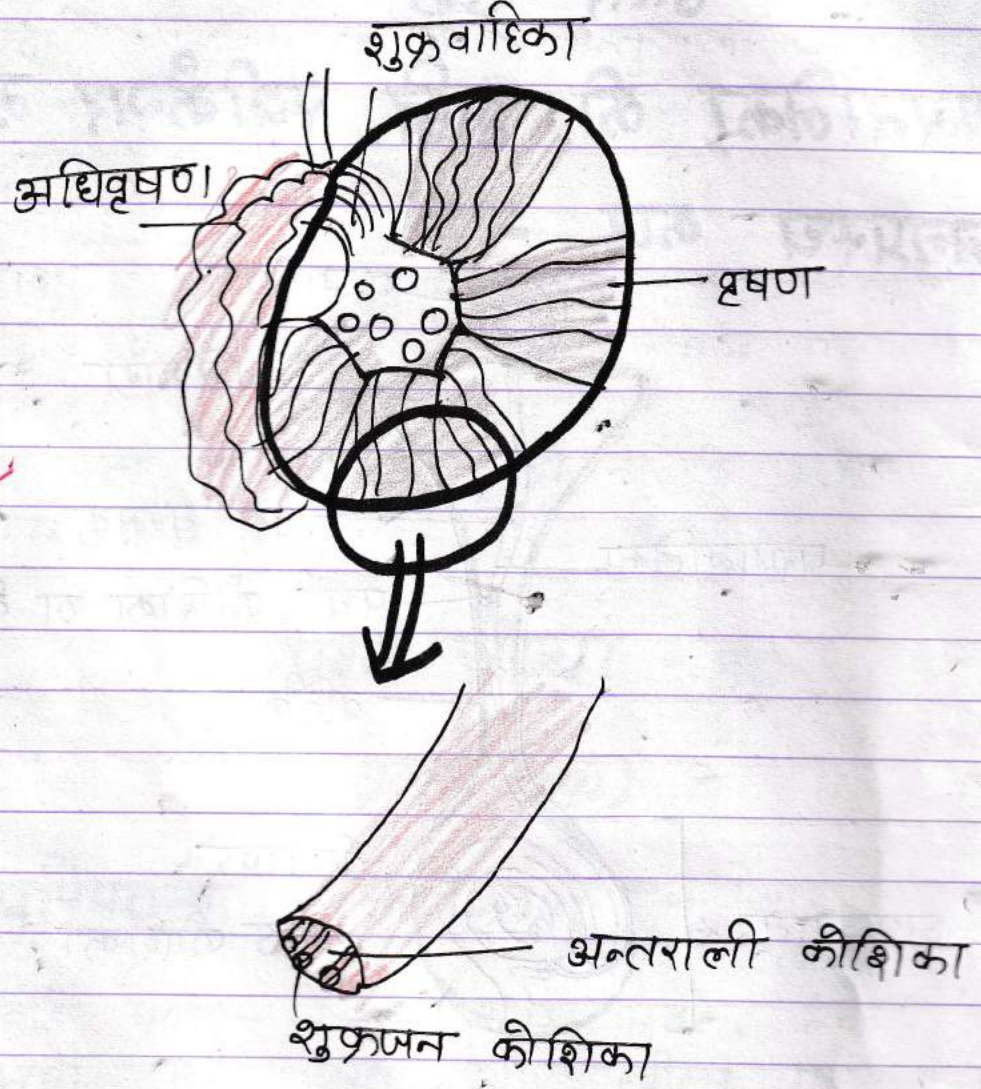 शुक्रवाहिका
अधिवृषण
वृषण
अन्तराली कोशिका
शुक्रजन कोशिका